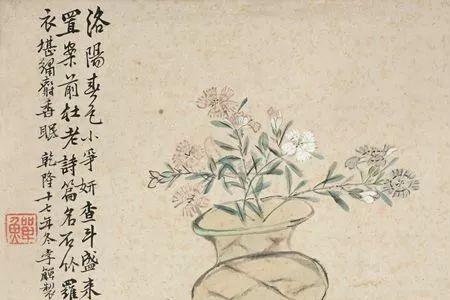 洛陽春色小爭妍查斗盛来
置案前杜老詩篇名石竹羅
衣堪繡麝香眠 乾隆十七年冬李製